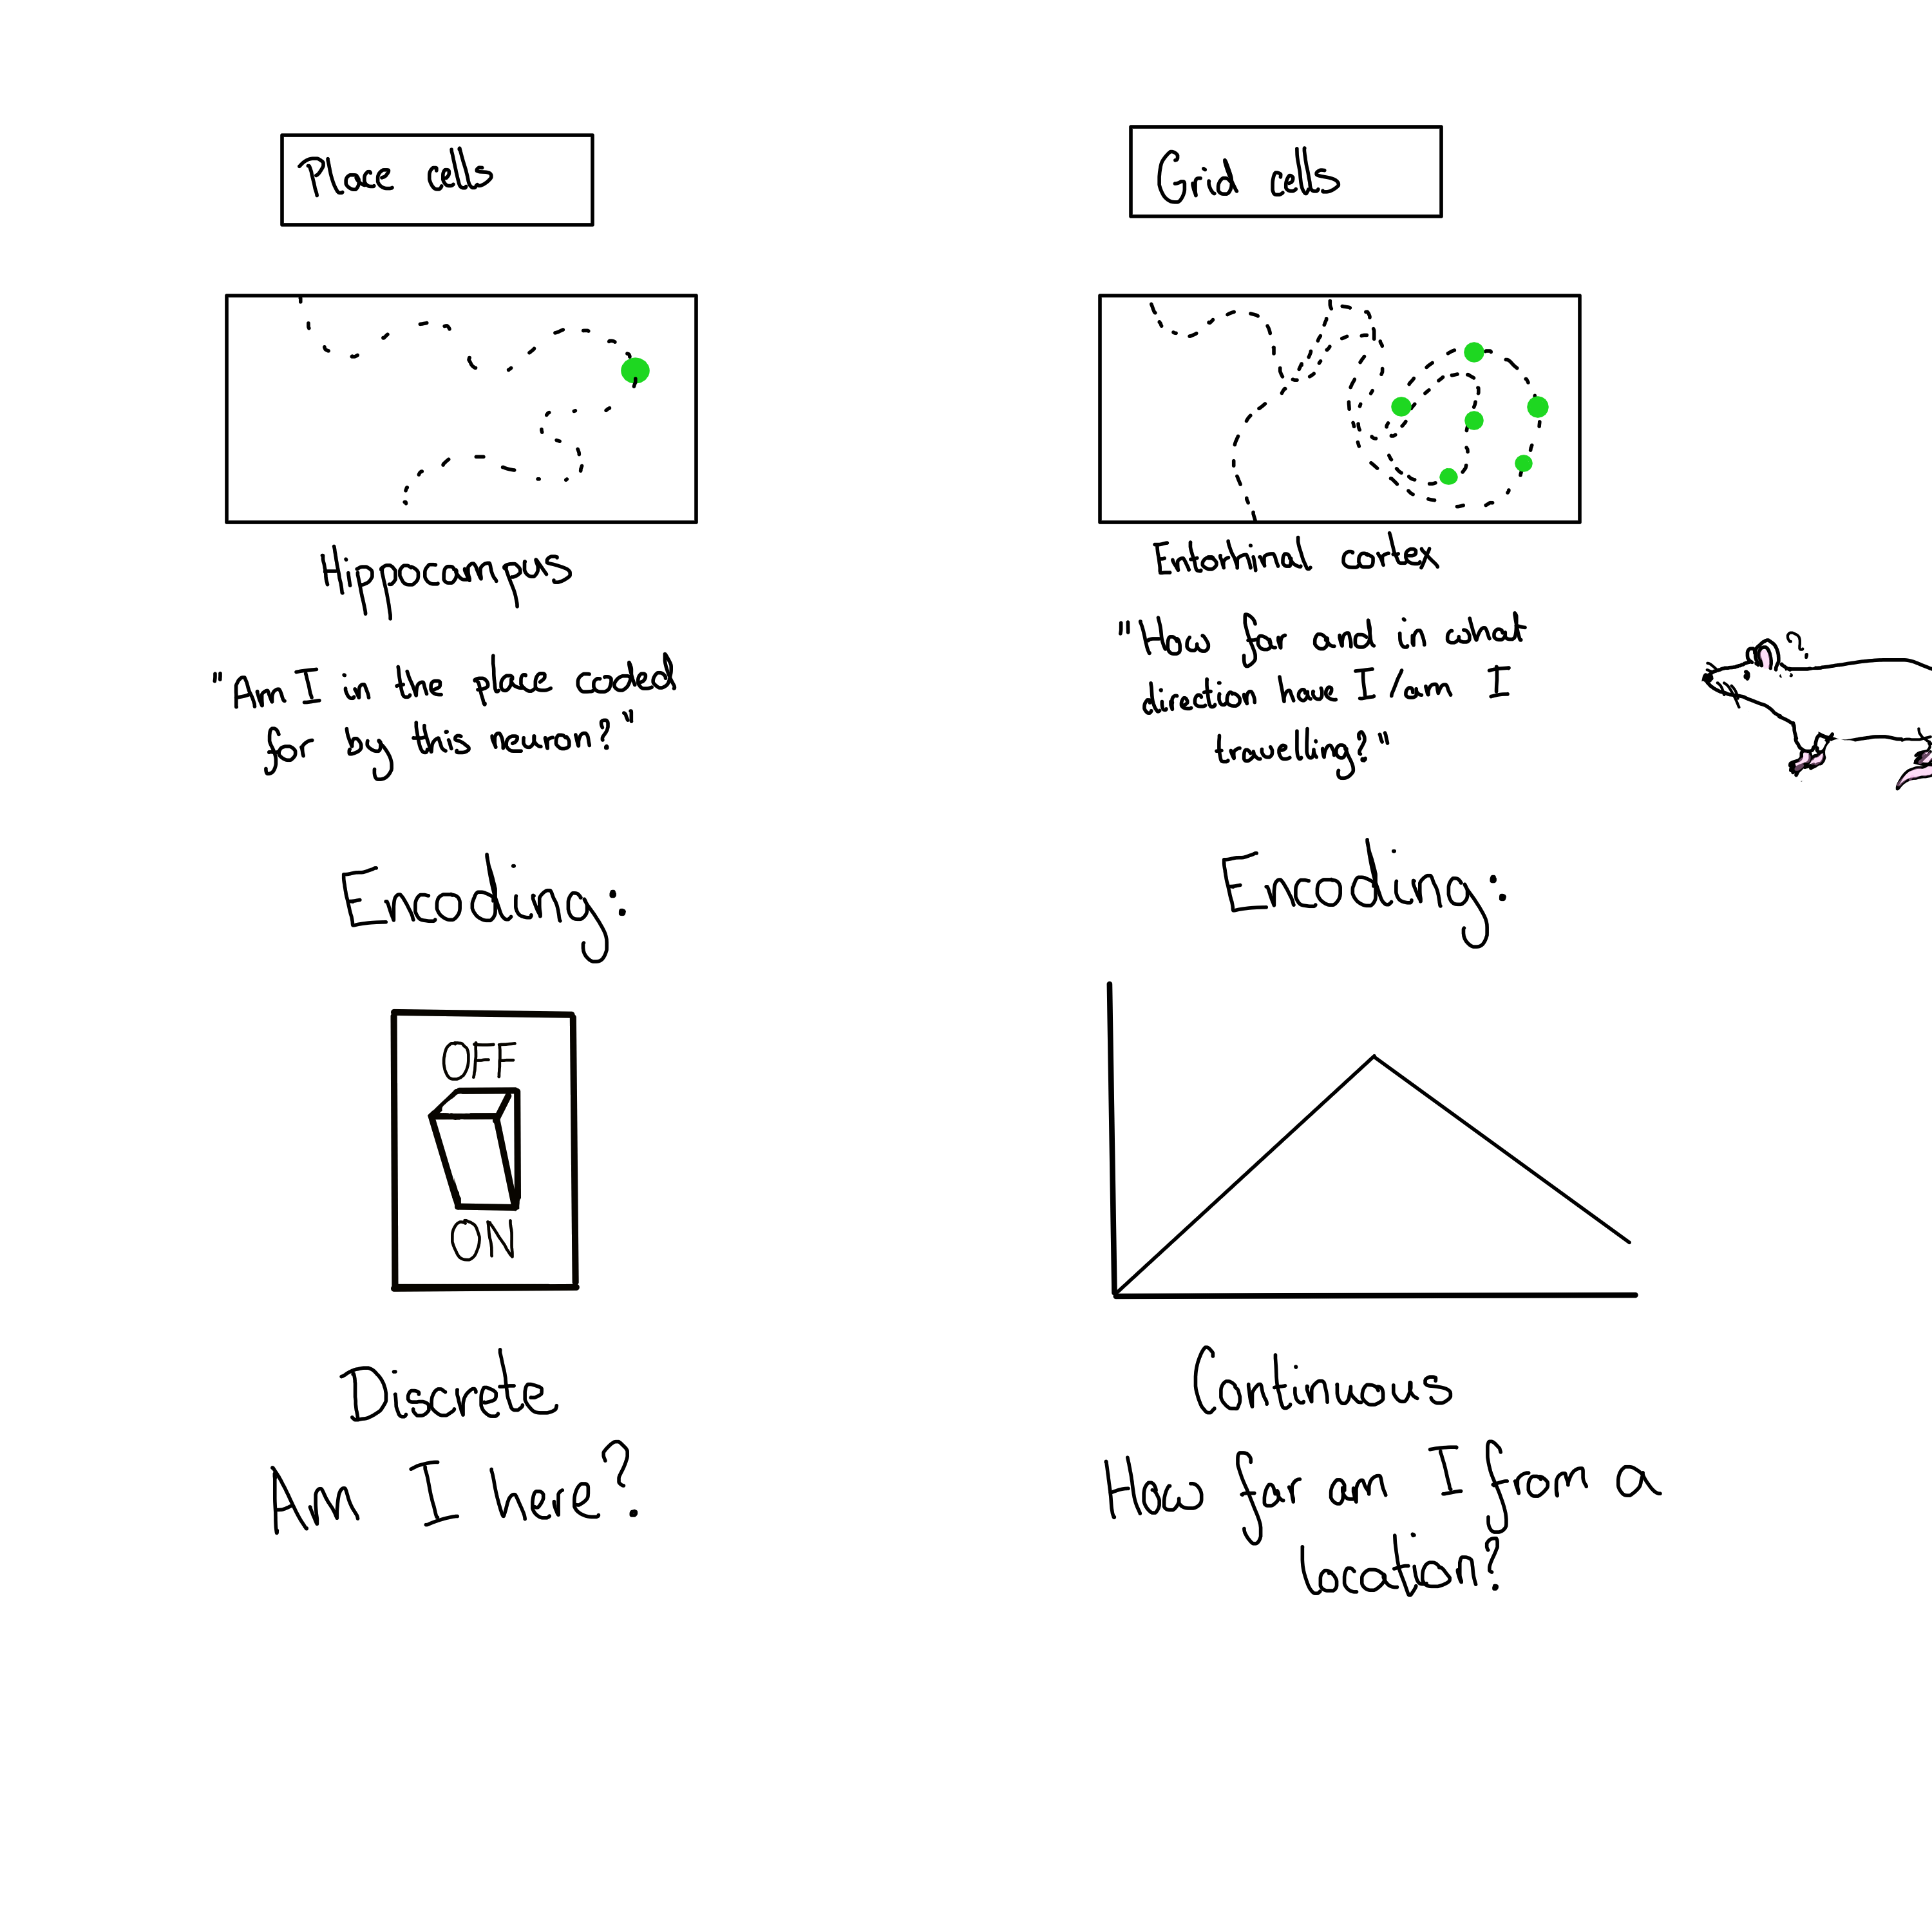 Place cells
Hippocampus
"Am I in the place coded
for by this neuron?"
Encoding:
OFF
ON
Discrete
Am I here?
Grid cells
Entorhinal cortex
"How far and in what
direction have I/am I
travelling?"
Encoding:
Continuous
How far am I from a
location?